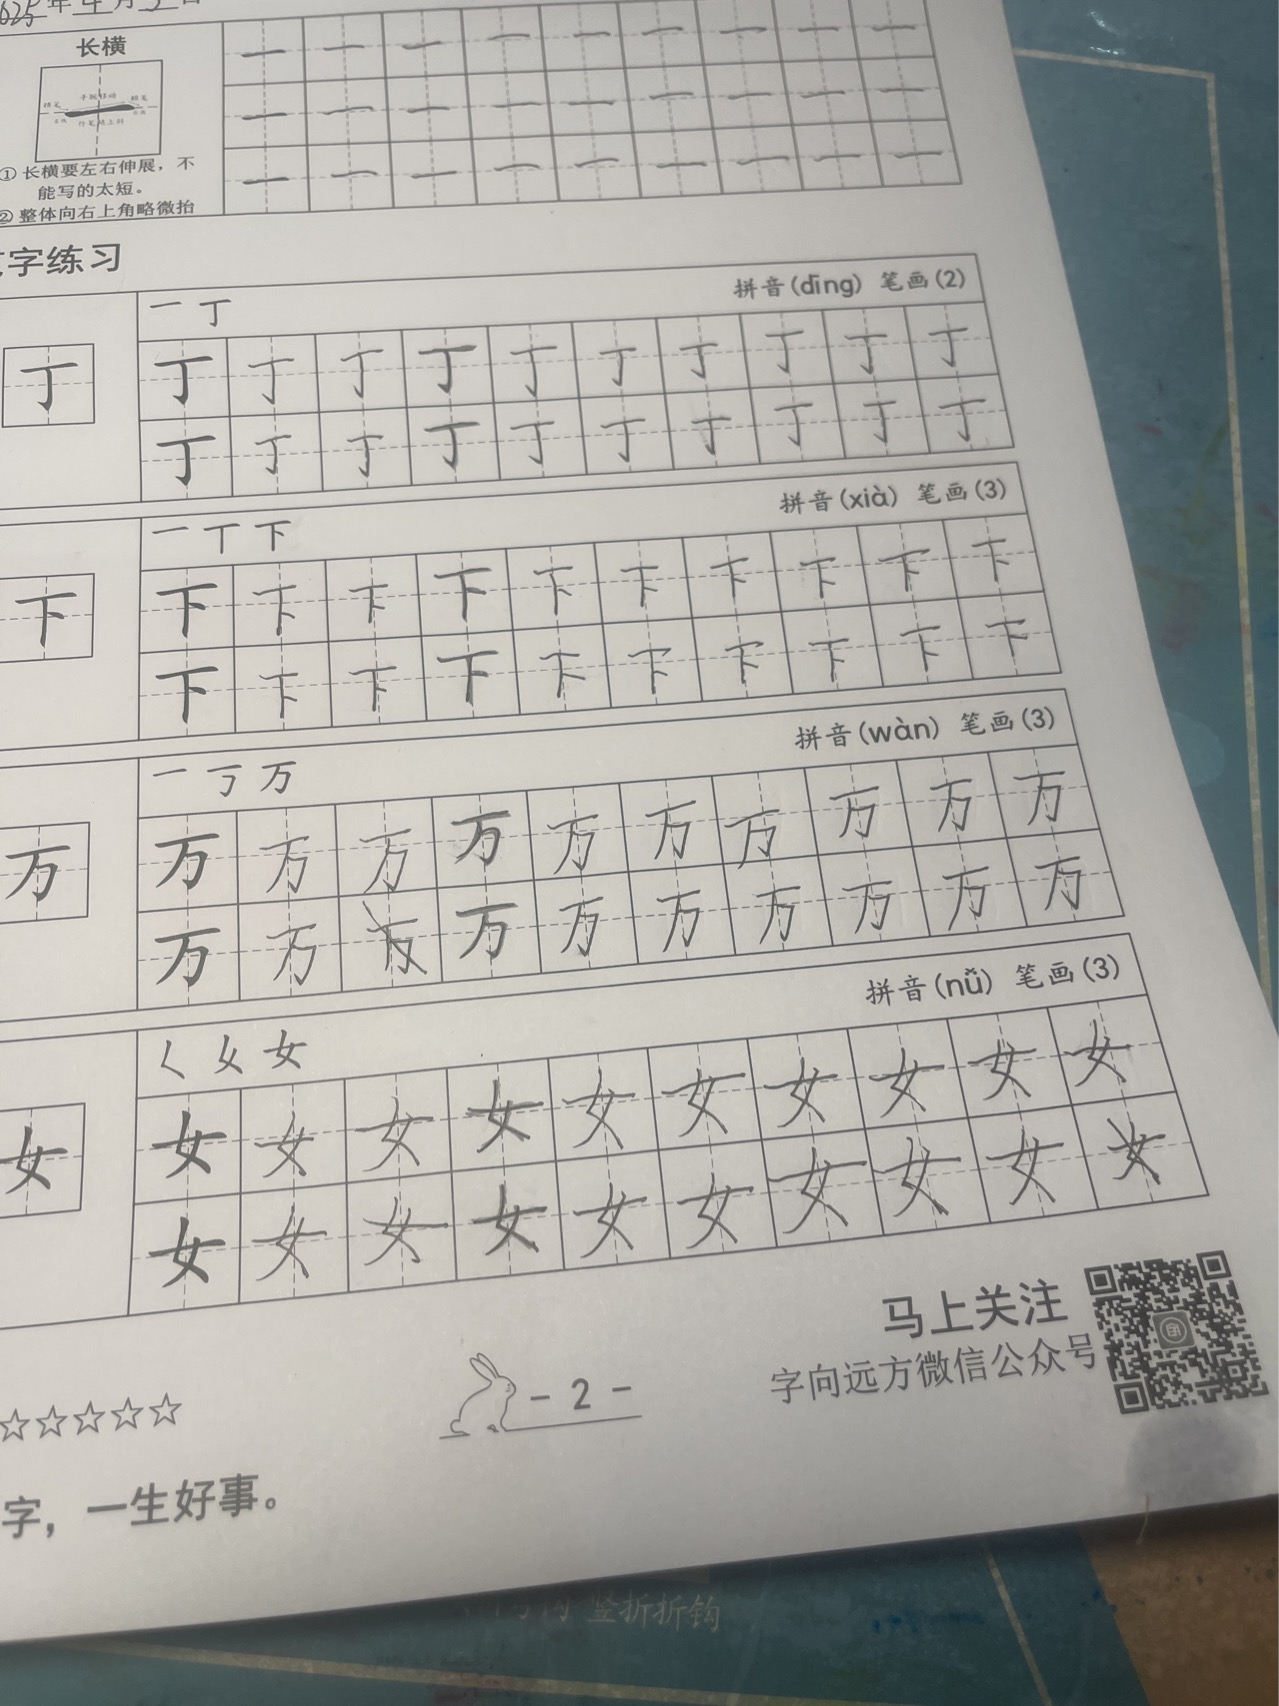 2025年4月3日
长横
① 长横要左右伸展，不
能写的太短。
② 整体向右上角略微抬
一 一 一 一 一 一 一 一 一
一 一 一 一 一 一 一 一 一
一 一 一 一 一 一 一 一 一
字练习
一 丁 拼音(dīng) 笔画(2)
丁
丁 丁 丁 丁 丁 丁 丁 丁 丁 丁
丁 丁 丁 丁 丁 丁 丁 丁 丁 丁
一 丅 下 拼音(xià) 笔画(3)
下
下 下 下 下 下 下 下 下 下 下
下 下 下 下 下 下 下 下 下 下
一 丁 万 拼音(wàn) 笔画(3)
万
万 万 万 万 万 万 万 万 万 万
万 万 万 万 万 万 万 万 万
く 夂 女 拼音(nǚ) 笔画(3)
女
女 女 女 女 女 女 女 女 女 女
女 女 女 女 女 女 女 女 女 女
马上关注
字向远方微信公众号
- 2 -
☆☆☆☆☆
字，一生好事。
竖折折钩